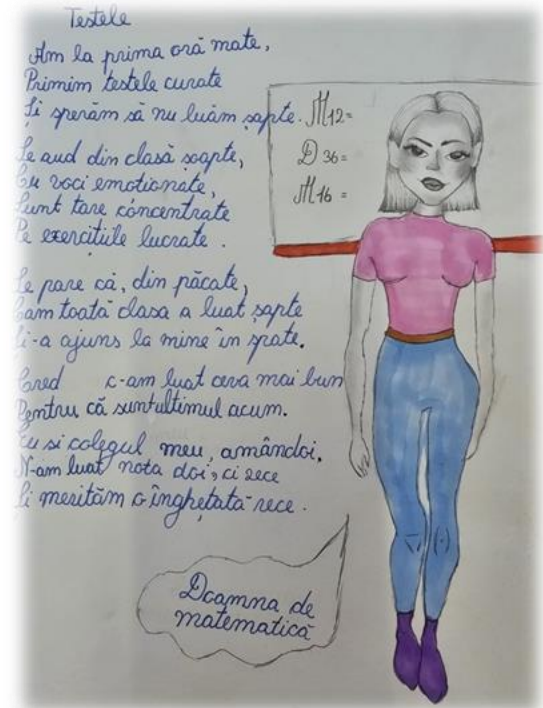 Testele
Am la prima oră mate,
Primim testele curate
Și sperăm să nu luăm șapte.
Se aud din clasă șoapte,
Cu voci emotionate,
Sunt tare concentrate
Pe exercitiile lucrate.
Se pare că, din păcate,
Cam toată clasa a luat șapte
Și-a ajuns la mine în spate.
Cred c-am luat ceva mai bun
Pentru că sunt ultimul acum.
Eu si colegul meu, amândoi,
N-am luat nota doi, ci zece
Și merităm o înghețată rece.
M12=
D36=
M16=
Doamna de
matematică